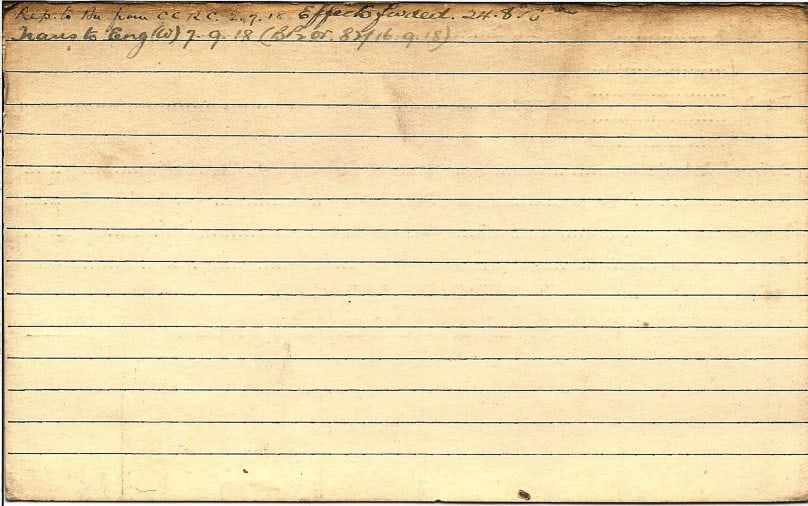 Rep. to Un from C.C.R.C. 2.7.18 Effects fwded. 24.8.18
Trans to Eng (W) 7.9.18 (BPt 2 or. 82/16.9.18)